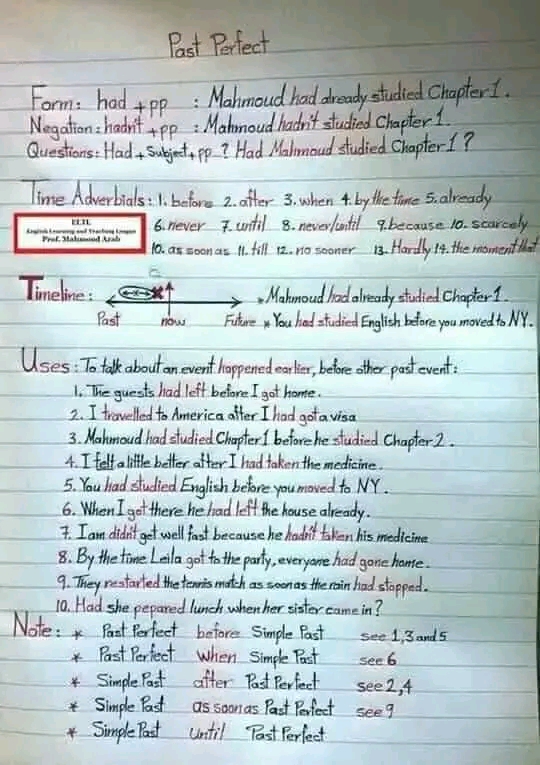 Past Perfect
Form: had + pp : Mahmoud had already studied Chapter 1.
Negation: hadn't + pp : Mahmoud hadn't studied Chapter 1.
Questions: Had + Subject + pp ? Had Mahmoud studied Chapter 1 ?
Time Adverbials: 1. before 2. after 3. when 4. by the time 5. already
ELTL
English Learning and Teaching League
Prof. Mahmoud Arab
6. never 7. until 8. never/until 9. because 10. scarcely
10. as soon as 11. till 12. no sooner 13. Hardly 14. the moment that
Timeline: * Mahmoud had already studied Chapter 1.
Past now Future * You had studied English before you moved to NY.
Uses: To talk about an event happened earlier, before other past event:
1. The guests had left before I got home.
2. I travelled to America after I had got a visa
3. Mahmoud had studied Chapter 1 before he studied Chapter 2.
4. I felt a little better after I had taken the medicine.
5. You had studied English before you moved to NY.
6. When I got there he had left the house already.
7. I am didn't get well fast because he hadn't taken his medicine
8. By the time Leila got to the party, everyone had gone home.
9. They restarted the tennis match as soon as the rain had stopped.
10. Had she pepared lunch when her sister came in ?
Note: * Past Perfect before Simple Past see 1,3 and 5
* Past Perfect when Simple Past see 6
* Simple Past after Past Perfect see 2,4
* Simple Past as soon as Past Perfect see 9
* Simple Past until Past Perfect